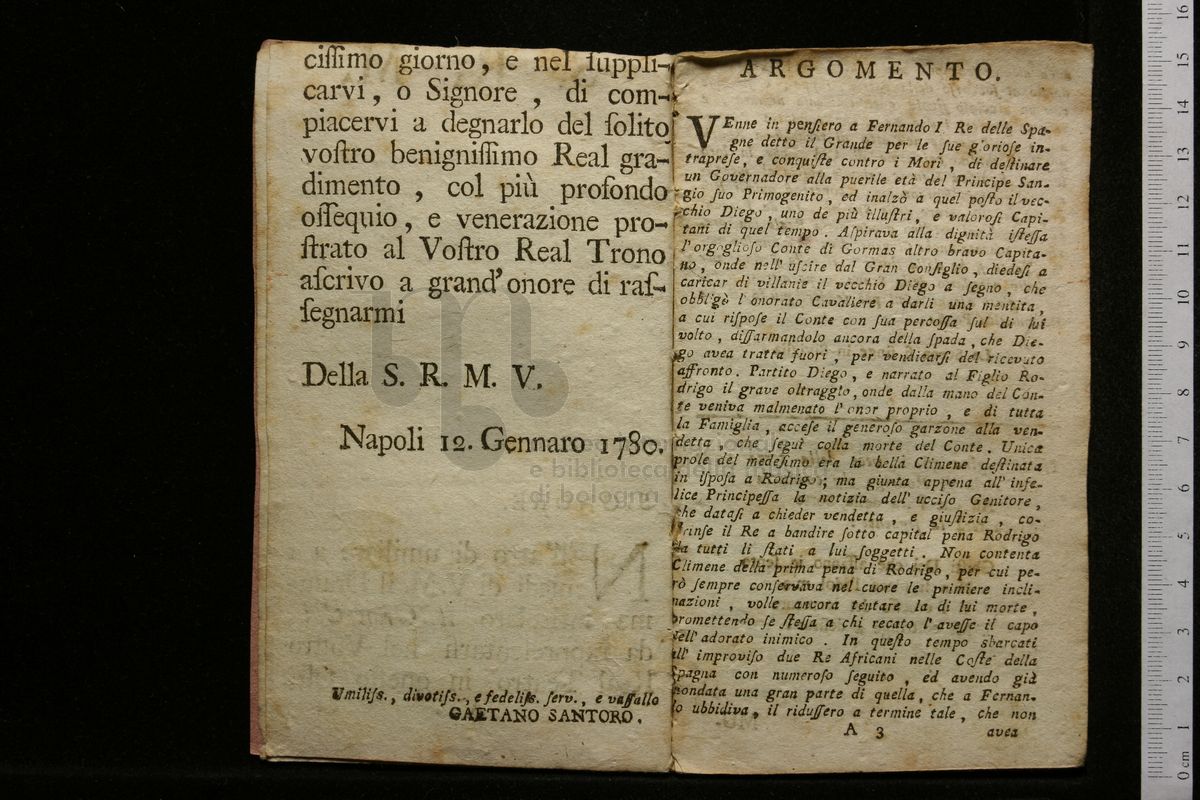 ciſſimo giorno, e nel ſuppli-
carvi, o Signore, di com-
piacervi a degnarlo del ſolito
voſtro benigniſſimo Real gra-
dimento, col più profondo
oſſequio, e venerazione pro-
ſtrato al Voſtro Real Trono
aſcrivo a grand'onore di raſ-
ſegnarmi
Della S. R. M. V.
Napoli 12. Gennaro 1780.
Umiliſs., divotiſs., e fedeliſs. ſerv., e vaſſallo
GAETANO SANTORO.
ARGOMENTO.
VEnne in penſiero a Fernando I Re delle Spa-
gne detto il Grande per le ſue glorioſe in-
trapreſe, e conquiſte contro i Mori, di deſtinare
un Governadore alla puerile età del Principe San-
gio ſuo Primogenito, ed inalzò a quel poſto il vec-
chio Diego, uno de più illuſtri, e valoroſi Capi-
tani di quel tempo. Aſpirava alla dignità iſteſſa
l'orgoglioſo Conte di Gormas altro bravo Capita-
no, onde nell'uſcire dal Gran Conſiglio, diedeſi a
caricar di villanie il vecchio Diego a ſegno, che
obbligò l'onorato Cavaliere a darli una mentita,
a cui riſpoſe il Conte con ſua percoſſa ſul di lui
volto, diſſarmandolo ancora della ſpada, che Die-
go avea tratta fuori, per vendicarſi del ricevuto
affronto. Partito Diego, e narrato al Figlio Ro-
drigo il grave oltraggio, onde dalla mano del Con-
te veniva malmenato l'onor proprio, e di tutta
la Famiglia, acceſe il generoſo garzone alla ven-
detta, che ſeguì colla morte del Conte. Unica
prole del medeſimo era la bella Climene deſtinata
in iſpoſa a Rodrigo; ma giunta appena all'infe-
lice Principeſſa la notizia dell'ucciſo Genitore,
che dataſi a chieder vendetta, e giuſtizia, co-
ſtrinſe il Re a bandire ſotto capital pena Rodrigo
da tutti li ſtati a lui ſoggetti. Non contenta
Climene della prima pena di Rodrigo, per cui pe-
rò ſempre conſervava nel cuore le primiere incli-
nazioni, volle ancora tentare la di lui morte,
promettendo ſe ſteſſa a chi recato l'aveſſe il capo
dell'adorato inimico. In queſto tempo sbarcati
all'improviſo due Re Africani nelle Coſte della
Spagna con numeroſo ſeguito, ed avendo già
inondata una gran parte di quella, che a Fernan-
do ubbidiva, il riduſſero a termine tale, che non
A 3 avea